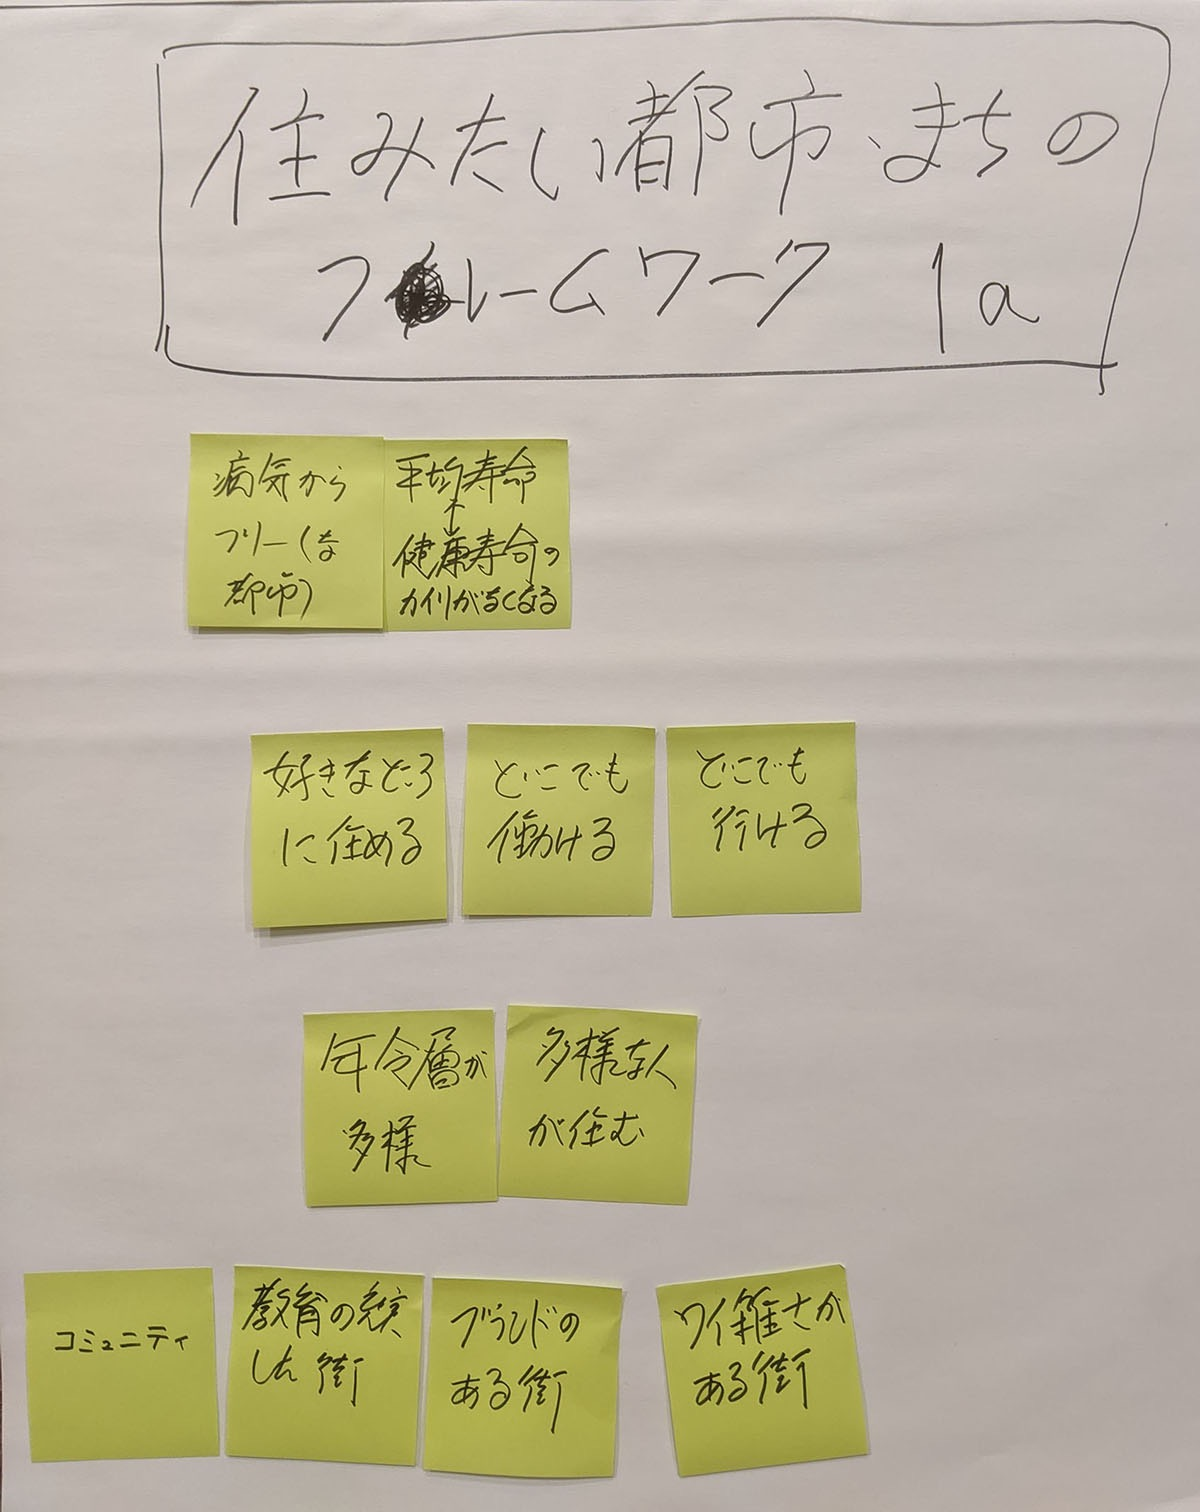 住みたい都市・まちの
フレームワーク 1a
病気から
フリー(な
都市)
平均寿命
↕
健康寿命の
カイリがなくなる
好きなところ
に住める
どこでも
働ける
どこでも
行ける
年令層が
多様
多様な人
が住む
コミュニティ
教育の充実
した街
ブランドの
ある街
ワイ雑さが
ある街